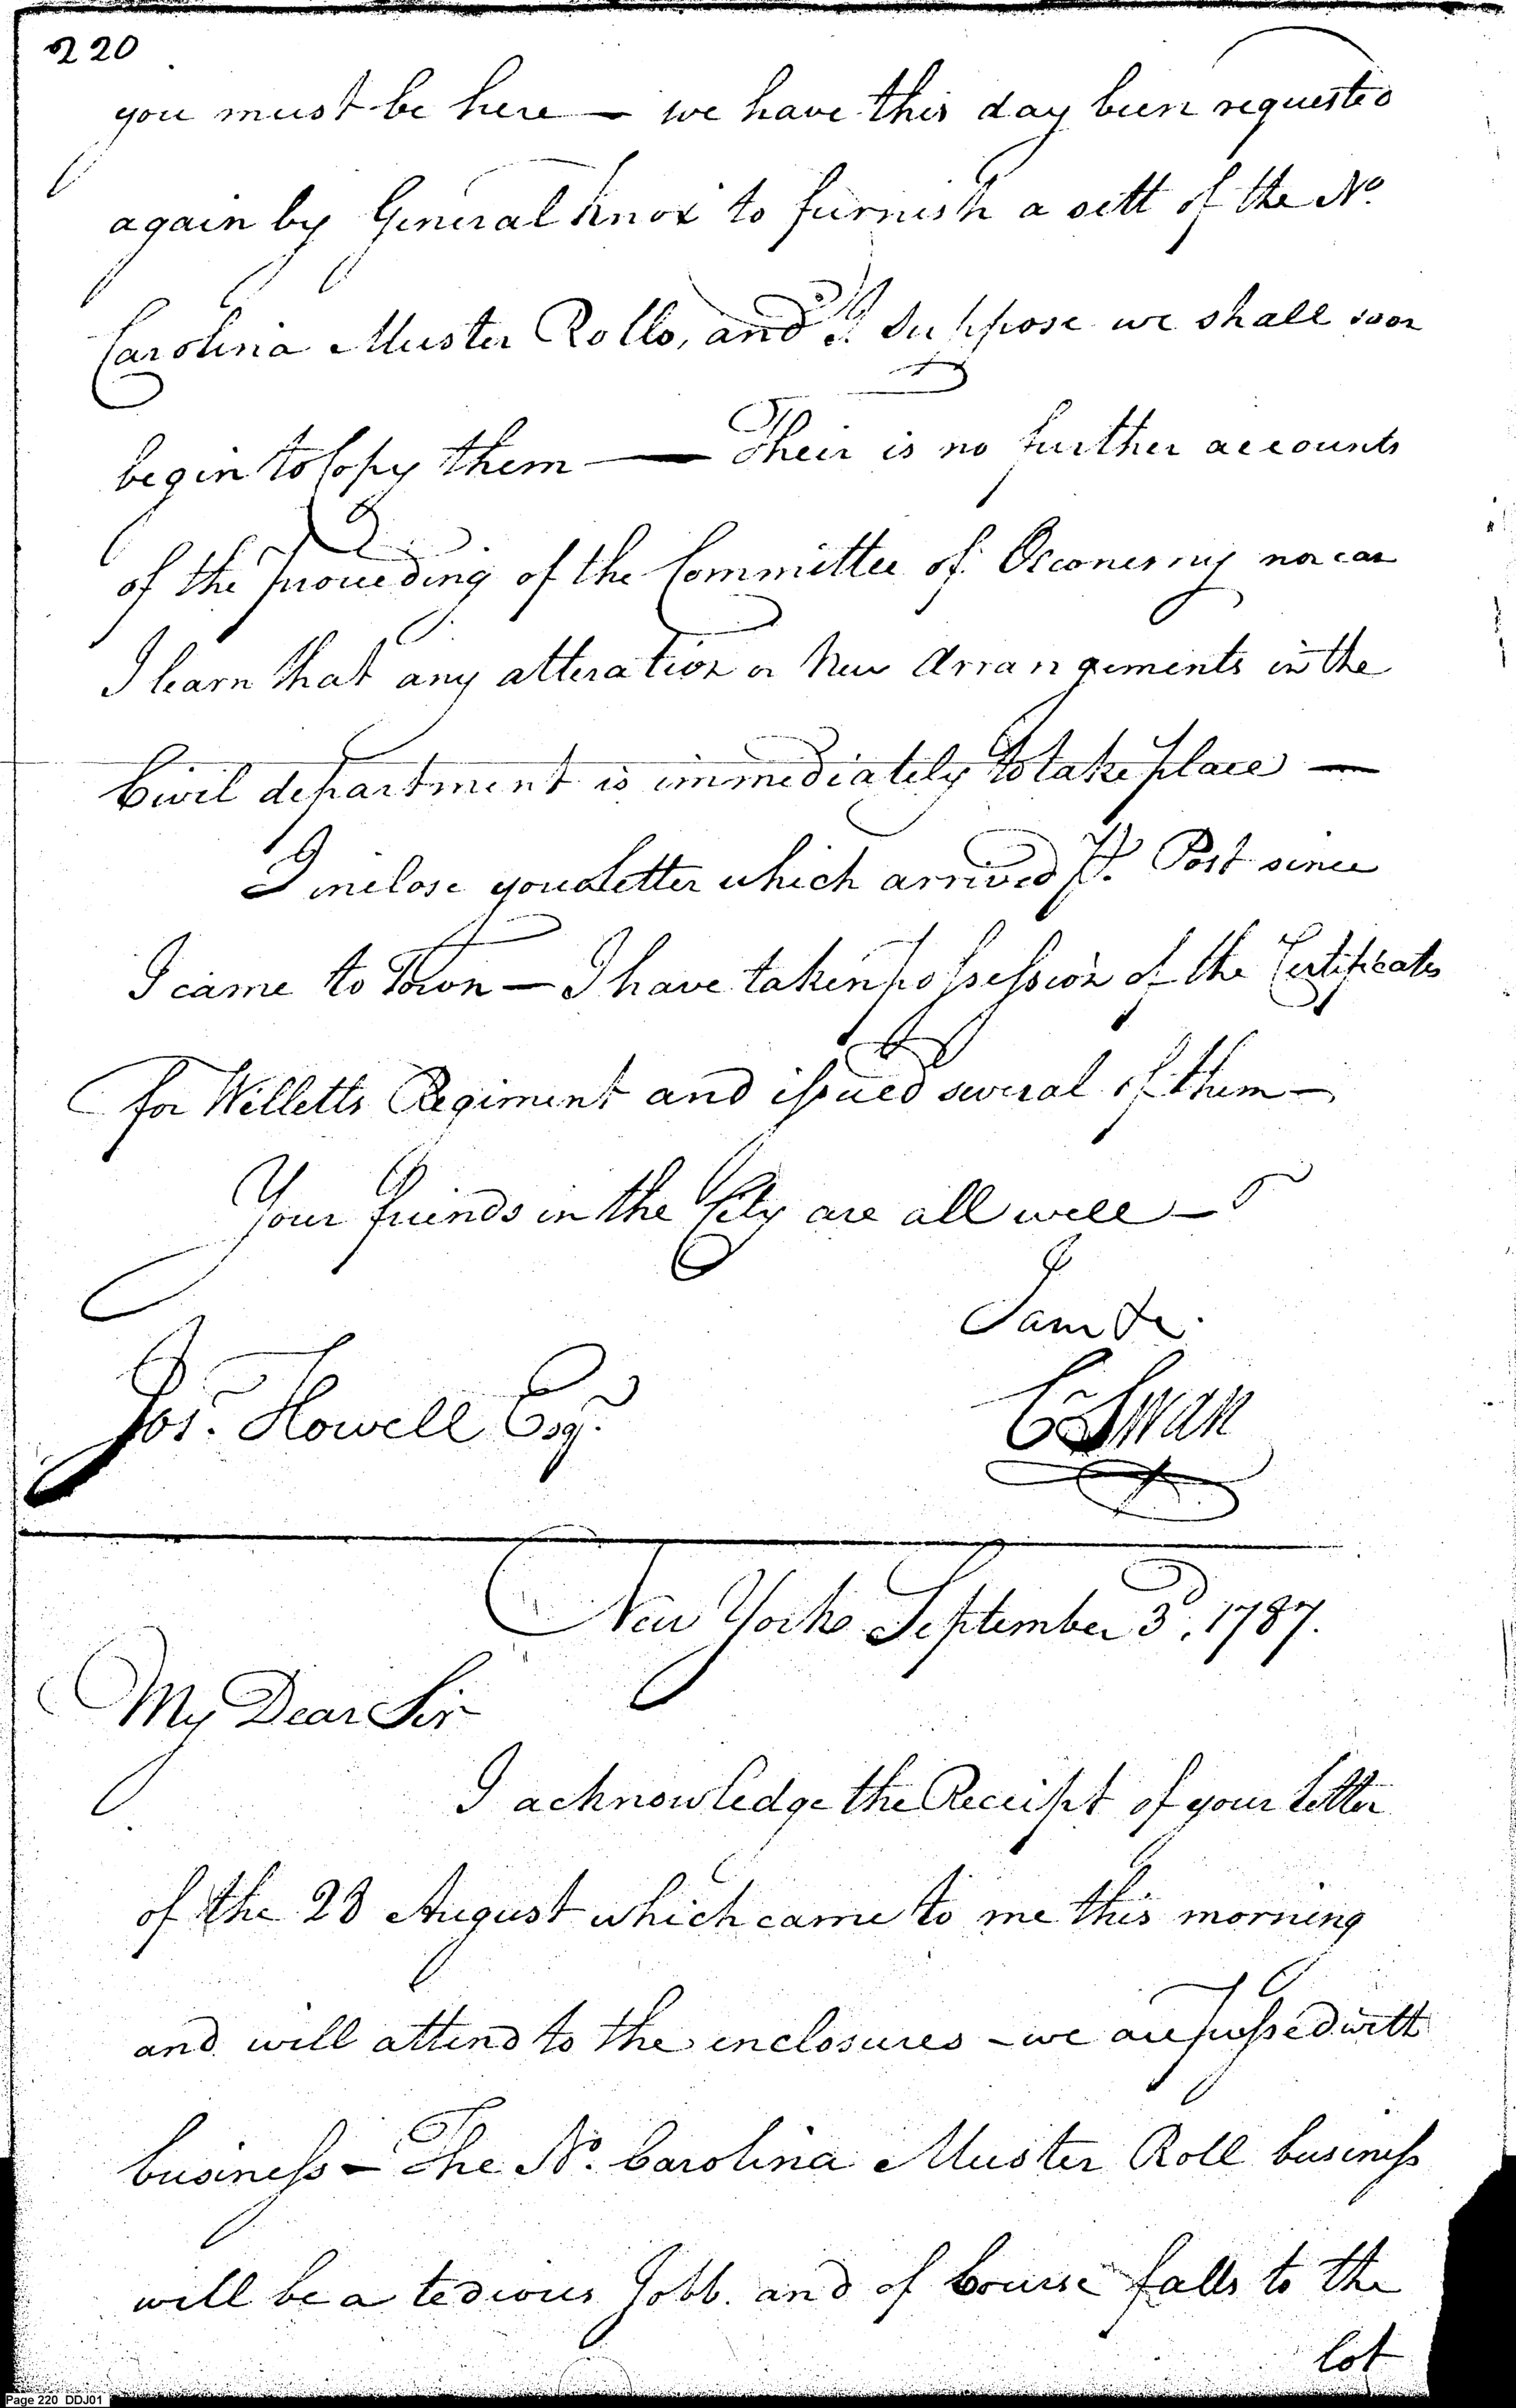 220
you must be here — we have this day been requested
again by General Knox to furnish a sett of the No.
Carolina Muster Rolls, and I Suppose we shall soon
begin to Copy them — Their is no further accounts
of the proceeding of the Committee of Oeconemy nor can
I learn that any alteration or New Arrangements in the
Civil department is immediately to take place —
I inclose you a Letter which arrived Pr. Post since
I came to Town — I have taken possession of the Certificates
for Willetts Regiment and issued several of them —
Your friends in the City are all well —
I am &c.
Jos. Howell Esqr.
C Swan
New York September 3d. 1787.
My Dear Sir
I acknowledge the Receipt of your Letter
of the 28 August which came to me this morning
and will attend to the enclosures - we are pressed with
business — The No. Carolina Muster Roll business
will be a tedious Jobb. and of Course falls to the
lot
Page 220 DDJ01